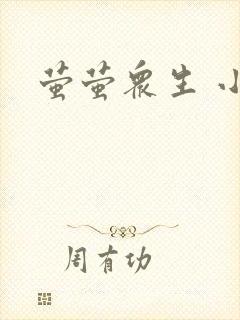 萤萤众生 小
周有功